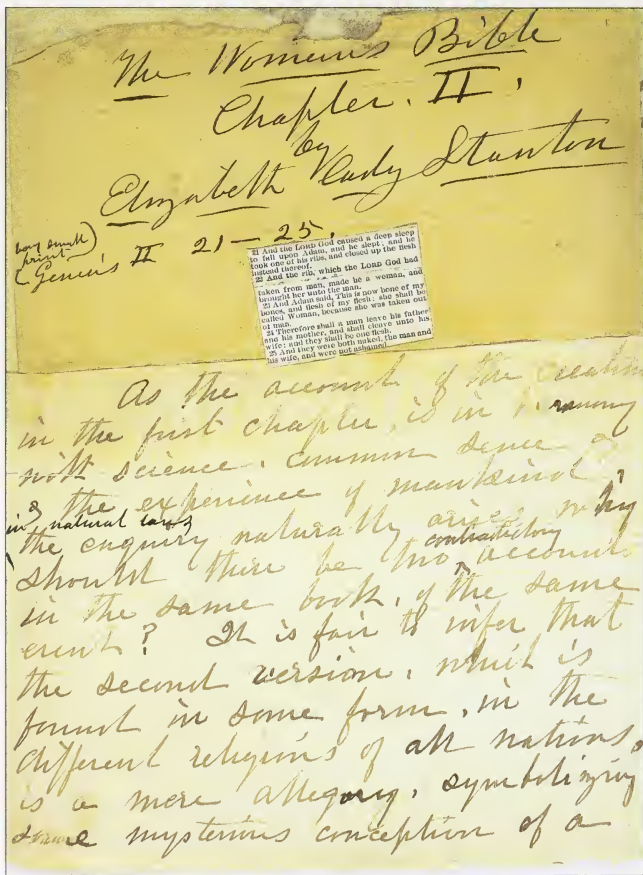 The Womans Bible
Chapter. II,
by
Elizabeth Cady Stanton
(very small
print)
Genesis II 21—25.
21 And the LORD God caused a deep sleep
to fall upon Adam, and he slept; and he
took one of his ribs, and closed up the flesh
instead thereof.
22 And the rib, which the LORD God had
taken from man, made he a woman, and
brought her unto the man.
23 And Adam said, This is now bone of my
bones, and flesh of my flesh: she shall be
called Woman, because she was taken out
of man.
24 Therefore shall a man leave his father
and his mother, and shall cleave unto his
wife: and they shall be one flesh.
25 And they were both naked, the man and
his wife, and were not ashamed.
As the account of the creation
in the first chapter, is in
with science, common sense &
& the experience of mankind
in natural laws
the enquiry naturally arises why
contradictory
should there be two accounts
in the same book, of the same
event? It is fair to infer that
the second version, which is
found in some form, in the
different religions of all nations,
is a mere allegory, symbolizing
some mysterious conception of a